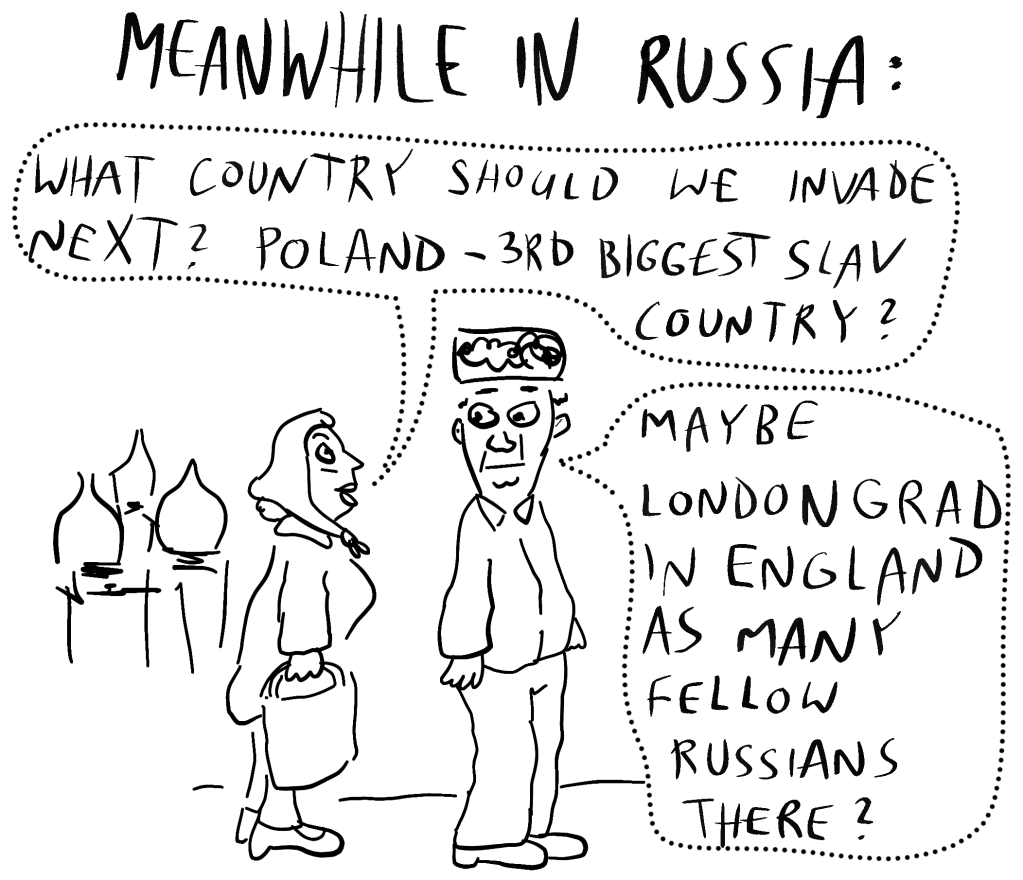 MEANWHILE IN RUSSIA:
WHAT COUNTRY SHOULD WE INVADE
NEXT? POLAND - 3RD BIGGEST SLAV
COUNTRY?
MAYBE
LONDONGRAD
IN ENGLAND
AS MANY
FELLOW
RUSSIANS
THERE?